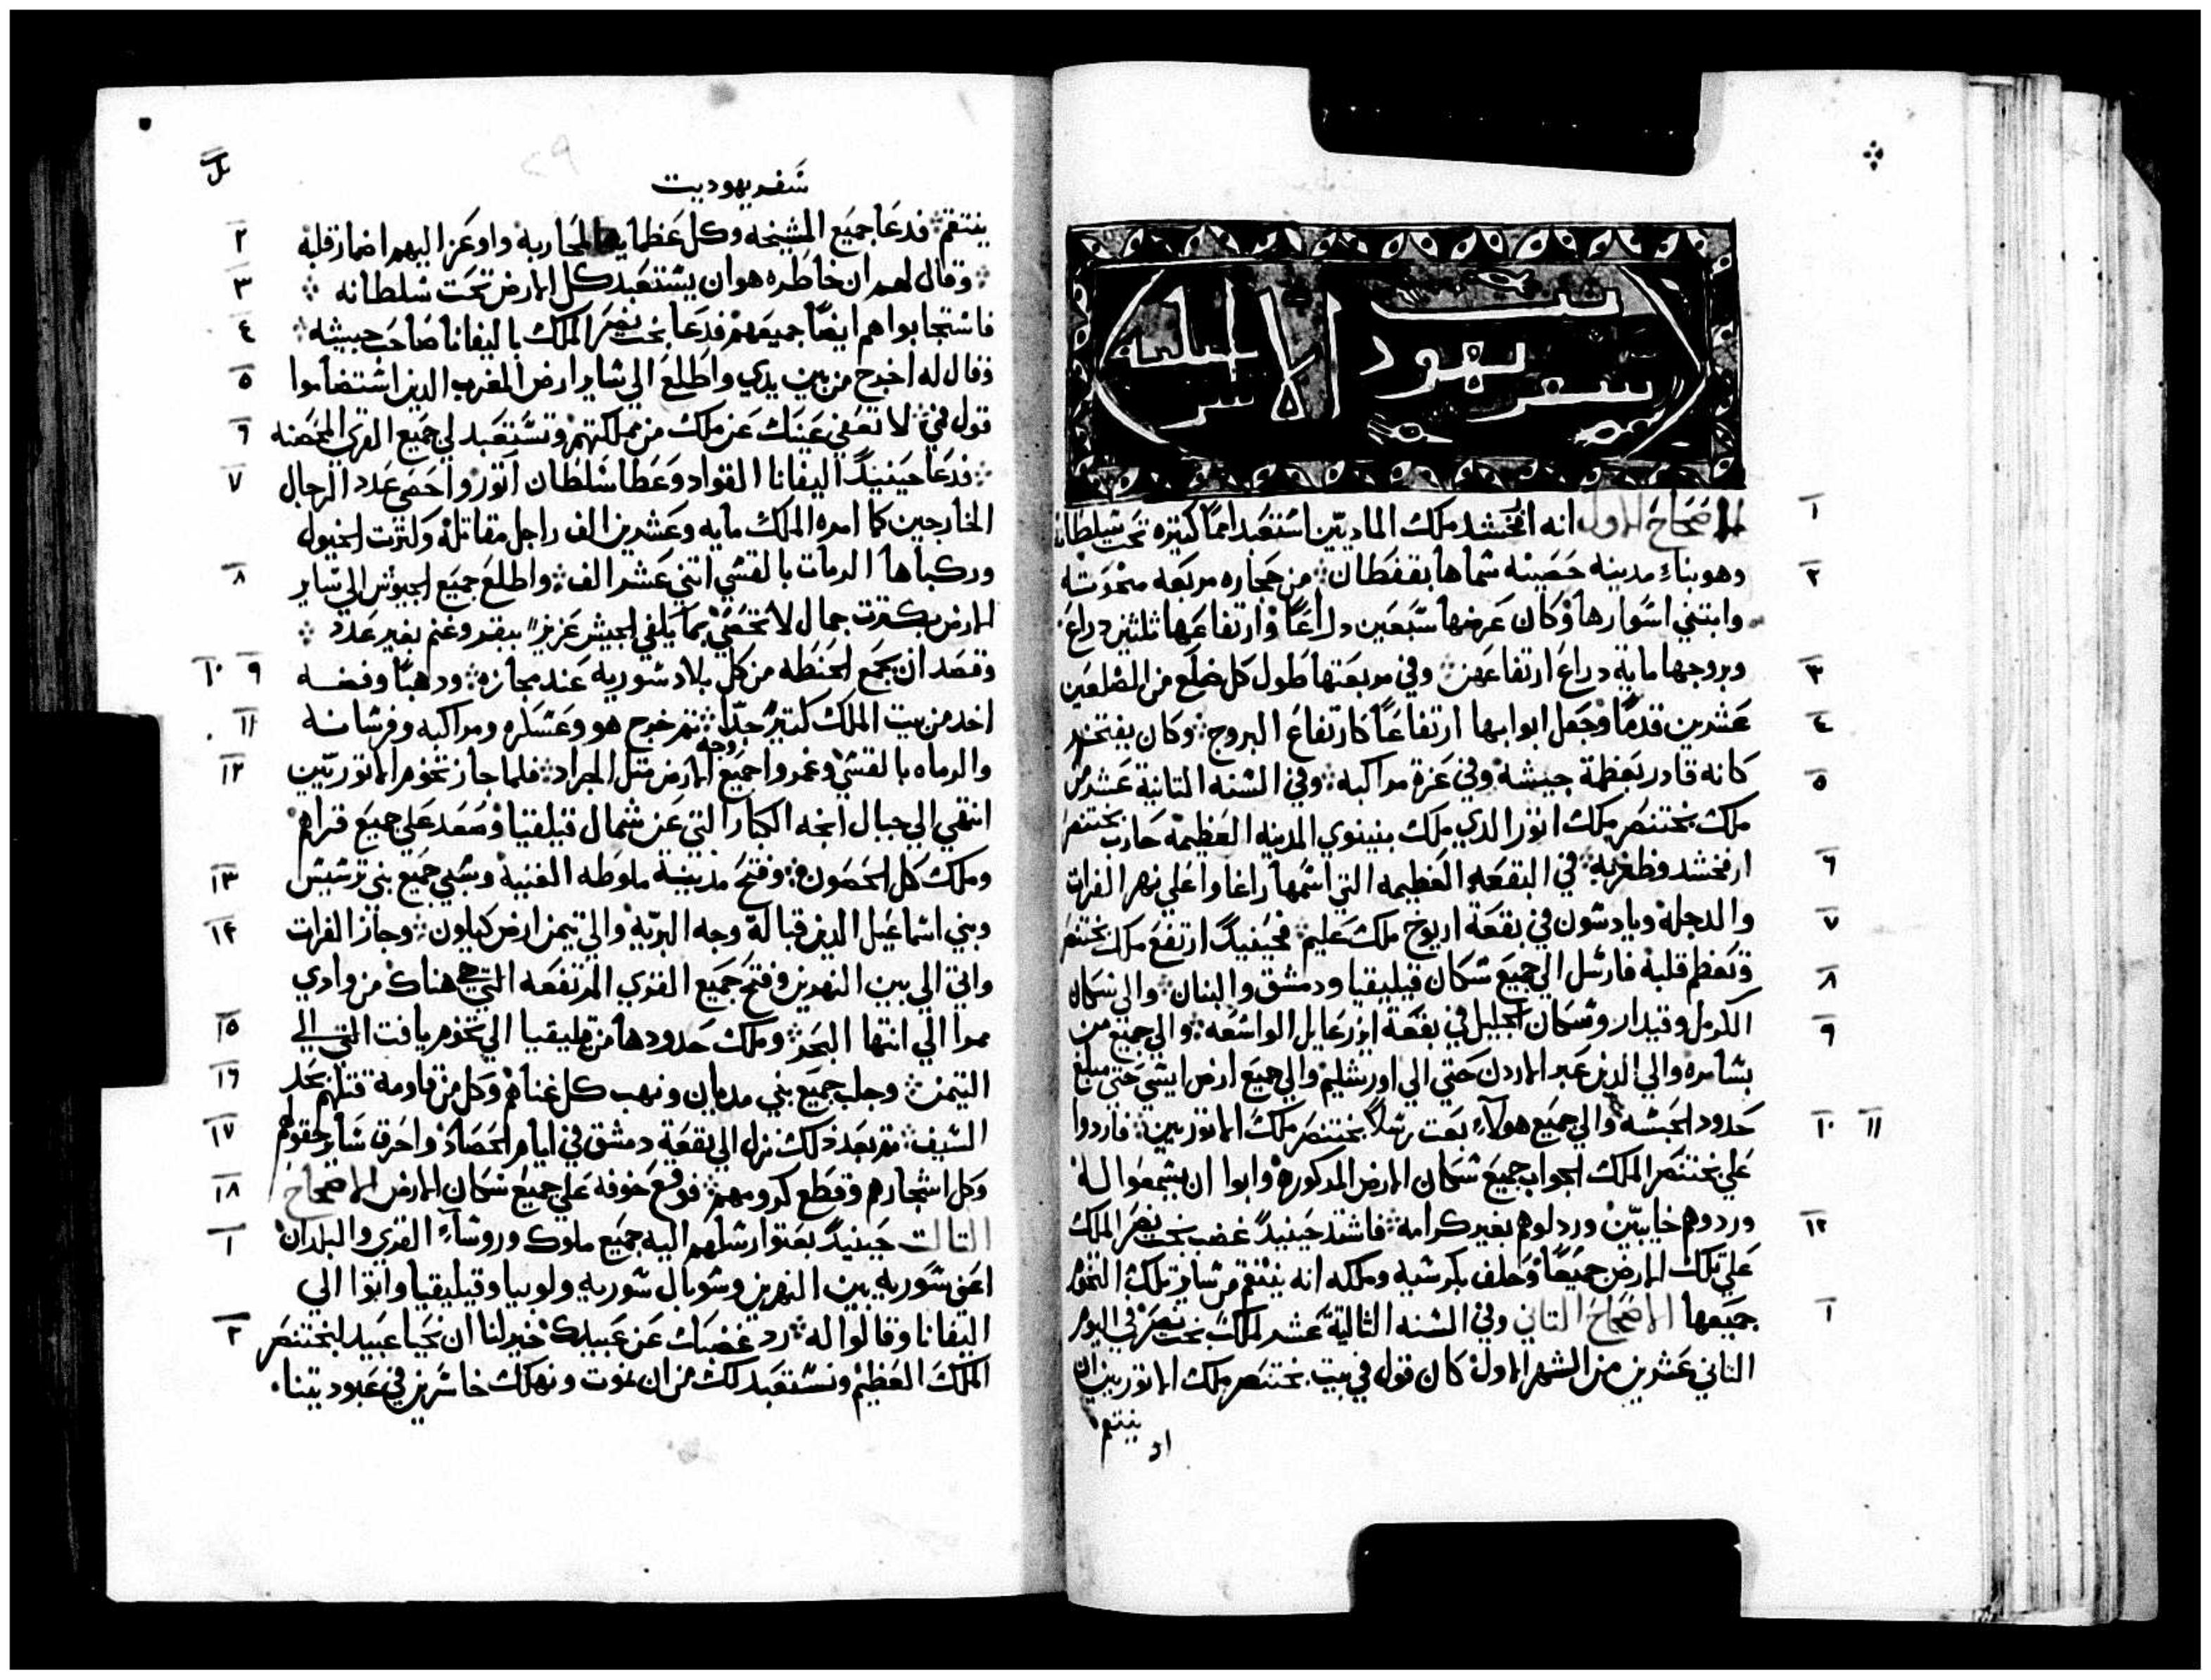 سفر يهوديت الاسرايليه
١ الاصحاح الاول انه ارفخشد ملك الماديين استعبد امما كتيره تحت سلطانه
٢ وهو بناء مدينه حصينه سماها بقفطان ܀ من حجاره مربعه منحوته
وابتني اسوارها وكان عرضها سبعين دراعا وارتفاعها تلتين دراع
٣ وبروجها ماية دراع ارتفاعهن ܀ وفي مربعتها طول كل ضلع من الضلعين
٤ عشرين قدما وجعل ابوابها ارتفاعا كارتفاع البروج ܀ وكان يفتخر
٥ كانه قادر بعظمة جيشه وفي عزة مراكبه ܀ وفي السنه التانية عشر من
ملك بختنصر ملك اتور الدي ملك بنينوي المدينه العظيمه حارب بختنصر
٦ ارفخشد وظفر به ܀ في البقعه العظيمه التي اسمها راغاوا علي نهر الفرات
٧ والدجله ويادسون في بقعة اريوخ ملك عليم ܀ فحينيد ارتفع ملك بختنصر
٨ وتعظم قلبه فارسل الي جميع سكان قيليقيا ودمشق والبنان ܀ والي سكان
٩ الكرمل وقيدار وسكان الجليل في بقعة ازرعايل الواسعه ܀ والي جميع من
بسامره والي الدين عبر الاردن حتي الي اورشليم والي جميع ارض ايسي حتي مبلغ
١٠ ١١ حدود الحبشه ܀ والي جميع هولاء بعت رسلا بختنصر ملك الاتوريين ܀ فاردوا
علي بختنصر الملك الجواب جميع سكان الارض المدكوره وابوا ان يسمعوا له
١٢ وردوهم خايبين وردلوهم بغير كرامه ܀ فاشتد حينيد غضب بخت نصر الملك
علي تلك الارض جميعا وحلف بكرسيه وملكه انه ينتقم من ساير تلك التخوم
١ جميعها الاصحاح التاني وفي السنه التالتة عشر لملك بخت نصر في اليوم
التاني عشرين من الشهر الاول كان قول في بيت بختنصر ملك الاتوريين ان
ينتقم
سفر يهوديت
٢ ينتقم ܀ فدعا جميع المشيخه وكل عظمايه المحاربة واوعز اليهم اضمار قلبه
٣ ܀ وقال لهم ان خاطره هو ان يستعبد كل الارض تحت سلطانه ܀
٤ فاستجابوا هم ايضا جميعهم فدعا بخت نصر الملك باليفانا صاحب جيشه ܀
٥ وقال له اخرج من بين يدي واطلع الي ساير ارض المغرب الدين استضاموا
٦ قول مني ܀ لا تعفي عينك عن ملك من مملكتهم وتستعبد لي جميع القري المحصنه
٧ ܀ فدعا حينيد اليفانا القواد وعظما سلطان اتور واحصي عدد الرجال
الخارجين كما امره الملك مايه وعشرين الف راجل مقاتلة وكترت الخيول
٨ وركباها الرمات بالقسي اتني عشر الف ܀ واطلع جميع الجيوش الي ساير
الارض بكترت جمال لا تحصي بما يكفي لجيش عزيز ببقر وغنم بغير عدد ܀
٩ ١٠ وقصد ان يجمع الحنطه من كل بلاد سوريه عند مجازه ܀ ودهبا وفضه
١١ اخد من بيت الملك كتير جدا ܀ تم خرج هو وعسكره ومراكبه وفرسانه
١٢ والرماه بالقسي وغمروا جميع وجه الارض متل الجراد ܀ فلما جاز تخوم الاتوريين
انتهي الي جبال انجه الكبار التي عن شمال قيلقيا وصعد علي جميع قراهم
١٣ وملك كل الحصون ܀ وفتح مدينة ملوطه الغنية وسبي جميع بني ترسيس
١٤ وبني اسماعيل الدين قبالة وجه البرية والي تيمن ارض كيلون ܀ وجاز الفرات
واتي الي بين النهرين وفتح جميع القري المرتفعه التي هناك من وادي
١٥ ممرا الي انتها البحر ܀ وملك حدودها من قليقيا الي تخوم يافت التي الي
١٦ التيمن ܀ وجلب جميع بني مديان ونهب كل غناهم وكل من قاومه قتلهم بحد
١٧ السيف ܀ تم بعد دلك نزل الي بقعة دمشق في ايام الحصاد واحرق ساير حقولهم
١٨ وكل اشجارهم وقطع كرومهم ܀ فوقع خوفه علي جميع سكان الارض الاصحاح
١ التالت حينيد بعتوا رسلهم اليه جميع ملوك وروساء القري والبلدان
اعني سورية بين النهرين وسوبال سوريه ولوبيا وقيليقيا واتوا الي
٢ اليفانا وقالوا له ܀ رد غضبك عن عبيدك خير لنا ان نحيا عبيد لبختنصر
الملك العظيم ونستعبد لك من ان نموت ونهلك خاسرين في عبوديتنا